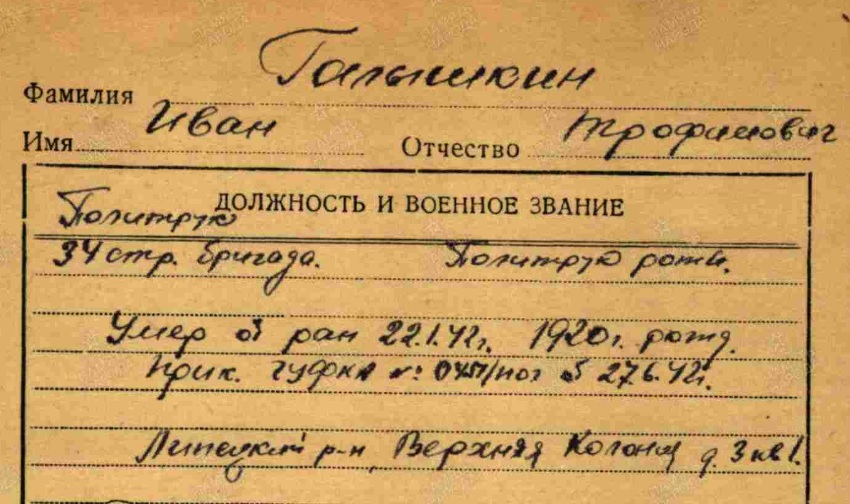 Фамилия Галышкин
Имя Иван Отчество Трофимович
ДОЛЖНОСТЬ И ВОЕННОЕ ЗВАНИЕ
Политрук
34 стр. бригада. Политрук роты.
Умер от ран 22.1.42г. 1920г. рожд.
Прик. ГУФКА №: от 27.6.42г.
Липецкий р-н, Верхняя Колония д. 3 кв 1.